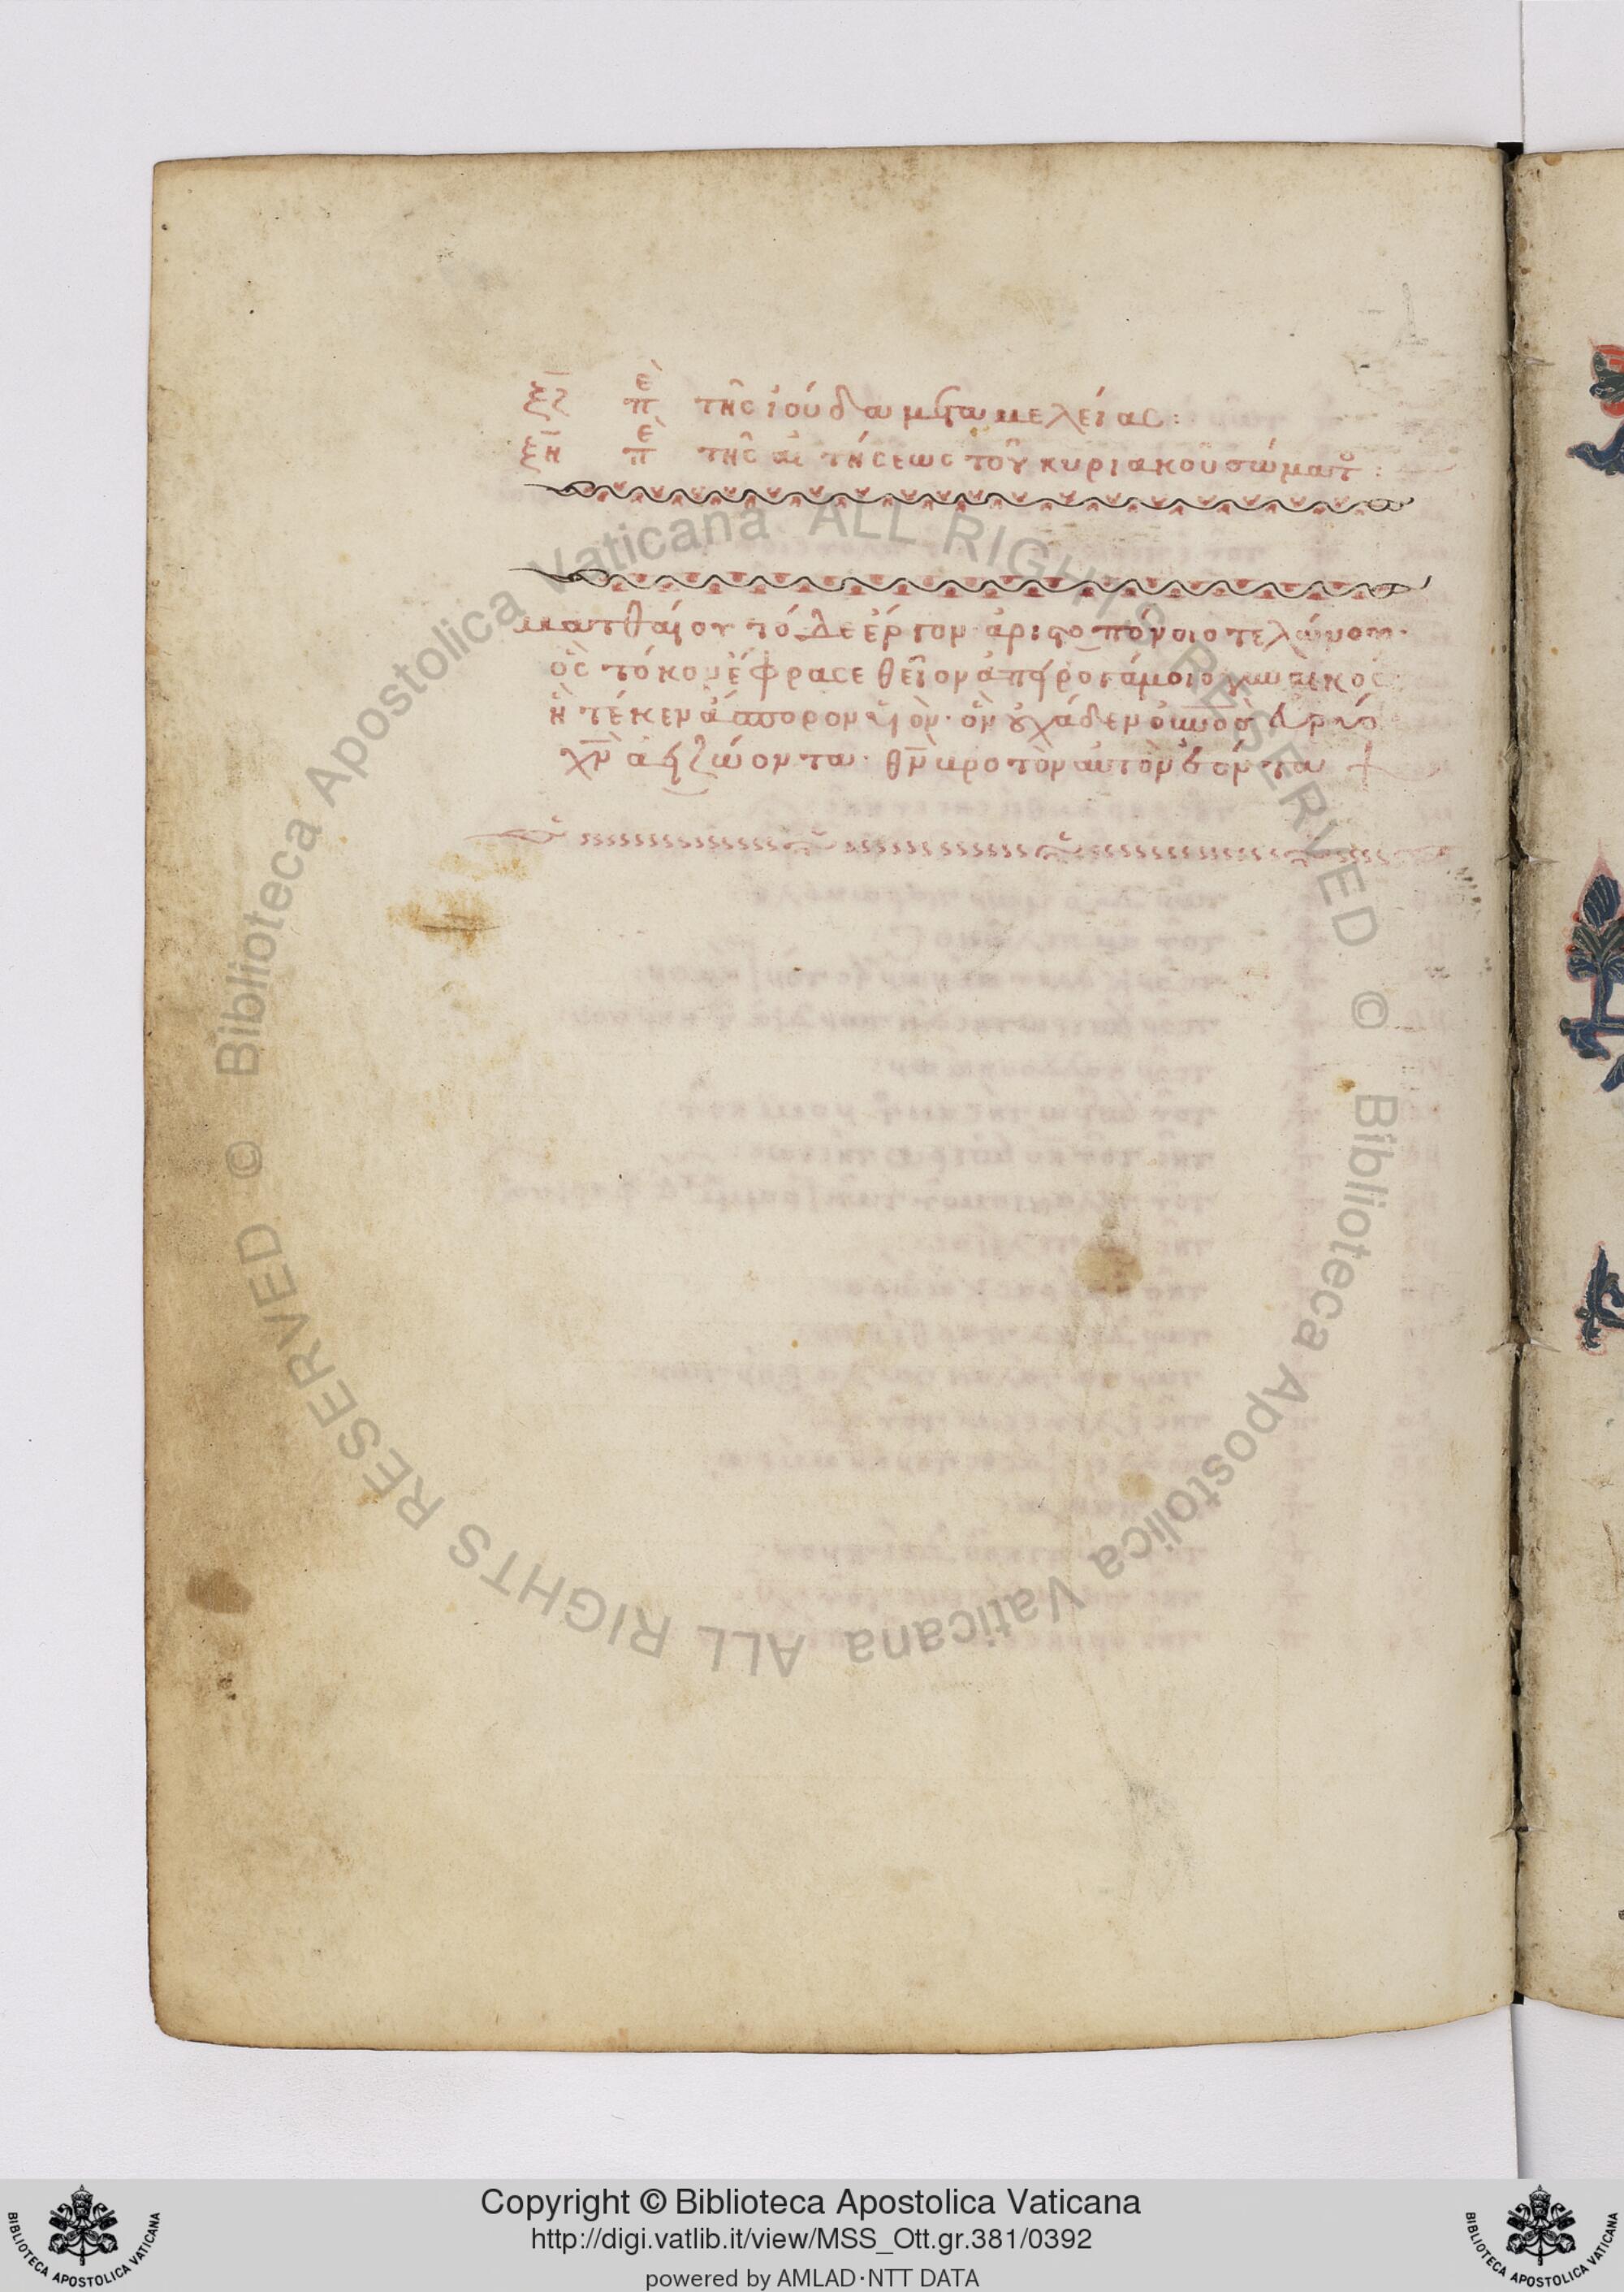 ξζ πε τῆς ἰούδα μεταμελείας:
ξη πε τῆς αἰτήσεως τοῦ κυριακοῦ σώματο:
ματθαίου τόδε ἔργον ἀριστοπόνοιο τελώνου·
ὃς τόκον ἔφρασε θεῖον ἀπειρογάμοιο γυναικός
ἣ τέκεν ἄσπορον υἱὸν· ὃν οὐ χάδεν
χν ἀεὶ ζώοντα· θν βροτὸν αὐτὸν ἐόντα
© Biblioteca Apostolica Vaticana ALL RIGHTS RESERVED © Biblioteca Apostolica Vaticana ALL RIGHTS RESERVED
Copyright © Biblioteca Apostolica Vaticana
http://digi.vatlib.it/view/MSS_Ott.gr.381/0392
powered by AMLAD·NTT DATA
BIBLIOTECA APOSTOLICA VATICANA
BIBLIOTECA APOSTOLICA VATICANA